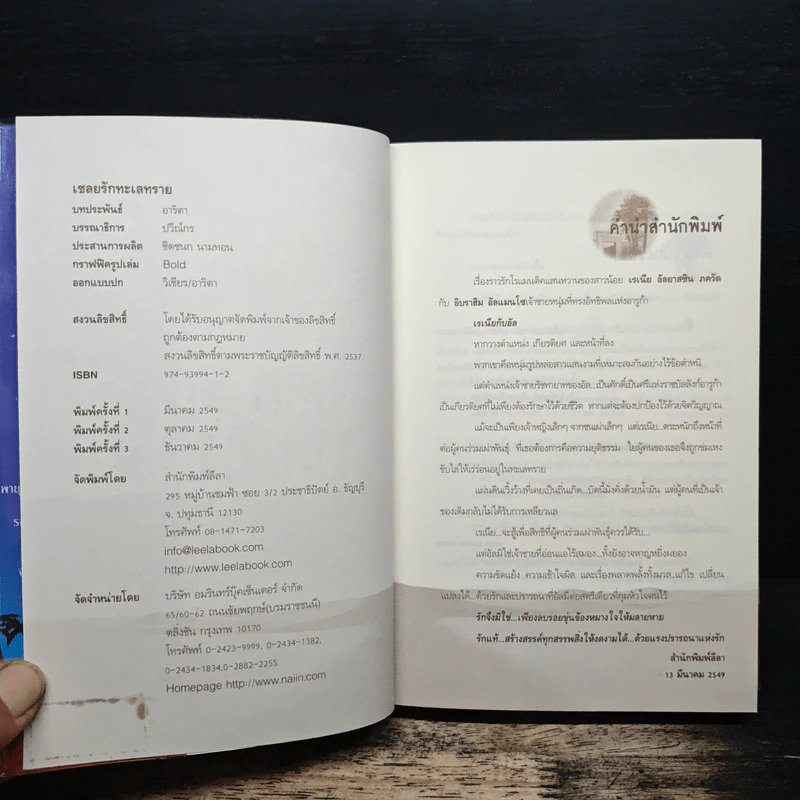 เชลยรักทะเลทราย
บทประพันธ์ อาริตา
บรรณาธิการ ปวีณ์กร
ประสานการผลิต ชิดชนก นามทอน
กราฟฟิครูปเล่ม Bold
ออกแบบปก วิเชียร/อาริตา
สงวนลิขสิทธิ์ โดยได้รับอนุญาตจัดพิมพ์จากเจ้าของลิขสิทธิ์
ถูกต้องตามกฎหมาย
สงวนลิขสิทธิ์ตามพระราชบัญญัติลิขสิทธิ์ พ.ศ. 2537
ISBN 974-93994-1-2
พิมพ์ครั้งที่ 1 มีนาคม 2549
พิมพ์ครั้งที่ 2 ตุลาคม 2549
พิมพ์ครั้งที่ 3 ธันวาคม 2549
จัดพิมพ์โดย สำนักพิมพ์ลีลา
295 หมู่บ้านชมฟ้า ซอย 3/2 ประชาธิปัตย์ อ. ธัญบุรี
จ. ปทุมธานี 12130
โทรศัพท์ 08-1471-7203
info@leelabook.com
http://www.leelabook.com
จัดจำหน่ายโดย บริษัท อมรินทร์บุ๊คเซ็นเตอร์ จำกัด
65/60-62 ถนนชัยพฤกษ์(บรมราชชนนี)
ตลิ่งชัน กรุงเทพ 10170
โทรศัพท์ 0-2423-9999, 0-2434-1382,
0-2434-1834,0-2882-2255
Homepage http://www.naiin.com
คำนำสำนักพิมพ์
เรื่องราวรักโรแมนติคแสนหวานของสาวน้อย เรเนีย อัลยาสซิน ภควัต
กับ อิบราฮิม อัลแมนโซเจ้าชายหนุ่มที่ทรงอิทธิพลแห่งอารูก้า
เรเนียกับอัล
หากวางตำแหน่ง เกียรติยศ และหน้าที่ลง
พวกเขาคือหนุ่มรูปหล่อสาวแสนงามที่เหมาะสมกันอย่างไร้ข้อตำหนิ
แต่ตำแหน่งเจ้าชายรัชทายาทของอัล...เป็นศักดิ์เป็นศรีแห่งราชบัลลังก์อารูก้า
เป็นเกียรติยศที่ไม่เพียงต้องรักษาไว้ด้วยชีวิต หากแต่จะต้องปกป้องไว้ด้วยจิตวิญญาณ
แม้จะเป็นเพียงเจ้าหญิงเล็กๆ จากชนเผ่าเล็กๆ แต่เรเนีย...ตระหนักถึงหน้าที่
ต่อผู้คนร่วมเผ่าพันธุ์ ที่เธอต้องการคือความยุติธรรม ไยผู้คนของเธอจึงถูกข่มเหง
ขับไล่ให้เร่ร่อนอยู่ในทะเลทราย
แผ่นดินเวิ้งว้างที่เคยเป็นถิ่นเกิด...บัดนี้มั่งคั่งด้วยน้ำมัน แต่ผู้คนที่เป็นเจ้า
ของเดิมกลับไม่ได้รับการเหลียวแล
เรเนีย...จะสู้เพื่อสิทธิที่ผู้คนร่วมเผ่าพันธุ์ควรได้รับ...
แต่อัลมิใช่เจ้าชายที่อ่อนแอไร้สมอง...ทั้งยังอาจหาญหยิ่งผยอง
ความขัดแย้ง ความเข้าใจผิด และเรื่องพลาดพลั้งทั้งมวล...แก้ไข เปลี่ยน
แปลงได้...ด้วยรักและปรารถนาที่อัลมีต่อสตรีเดียวที่กุมหัวใจตนไว้
รักจึงมิใช่...เพียงลบรอยขุ่นข้องหมางใจให้มลายหาย
รักแท้...สร้างสรรค์ทุกสรรพสิ่งให้งดงามได้...ด้วยแรงปรารถนาแห่งรัก
สำนักพิมพ์ลีลา
13 มีนาคม 2549